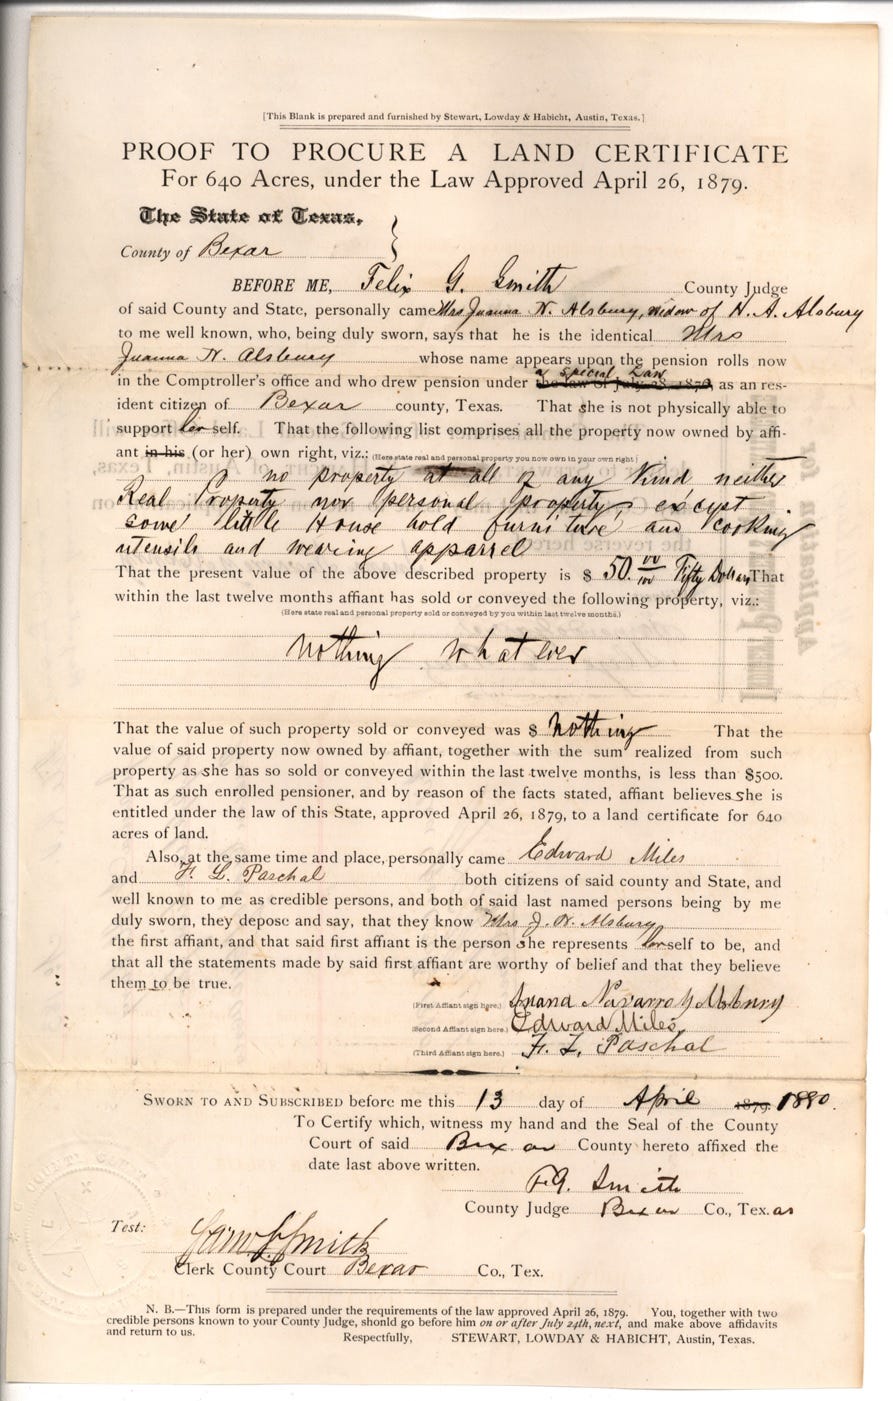 [This Blank is prepared and furnished by Stewart, Lowday & Habicht, Austin, Texas.]
PROOF TO PROCURE A LAND CERTIFICATE
For 640 Acres, under the Law Approved April 26, 1879.
The State of Texas,
County of Bexar
BEFORE ME, Felix G. Smith County Judge
of said County and State, personally came Mrs Juanna N. Alsbury, widow of H. A. Alsbury
to me well known, who, being duly sworn, says that he is the identical Mrs
Juanna N. Alsbury whose name appears upon the pension rolls now
a special Law
in the Comptroller's office and who drew pension under the law of July 28, 1876, as an res-
ident citizen of Bexar county, Texas. That she is not physically able to
support her self. That the following list comprises all the property now owned by affi-
ant in his (or her) own right, viz.: (Here state real and personal property you now own in your own right)
no property at all of any Kind neither
Real Property nor personal property, except
some little House hold furniture, and cooking
utensils and wearing apparrel
That the present value of the above described property is $ 50.00/00 Fifty Dollars, That
within the last twelve months affiant has sold or conveyed the following property, viz.:
(Here state real and personal property sold or conveyed by you within last twelve months.)
nothing whatever
That the value of such property sold or conveyed was $ nothing That the
value of said property now owned by affiant, together with the sum realized from such
property as she has so sold or conveyed within the last twelve months, is less than $500.
That as such enrolled pensioner, and by reason of the facts stated, affiant believes she is
entitled under the law of this State, approved April 26, 1879, to a land certificate for 640
acres of land.
Also, at the same time and place, personally came Edward Miles
and F. L. Paschal both citizens of said county and State, and
well known to me as credible persons, and both of said last named persons being by me
duly sworn, they depose and say, that they know Mrs J. N. Alsbury
the first affiant, and that said first affiant is the person she represents herself to be, and
that all the statements made by said first affiant are worthy of belief and that they believe
them to be true.
(First Affiant sign here.) Juana Navarro y Alsbury
(Second Affiant sign here.) Edward Miles
(Third Affiant sign here.) F. L. Paschal
SWORN TO AND SUBSCRIBED before me this 13 day of April 1879. 1880.
To Certify which, witness my hand and the Seal of the County
Court of said Bexar County hereto affixed the
date last above written.
F. G. Smith
County Judge Bexar Co., Texas
Test:
Sam S. Smith
Clerk County Court Bexar Co., Tex.
N. B.—This form is prepared under the requirements of the law approved April 26, 1879. You, together with two
credible persons known to your County Judge, should go before him on or after July 24th, next, and make above affidavits
and return to us.
Respectfully, STEWART, LOWDAY & HABICHT, Austin, Texas.